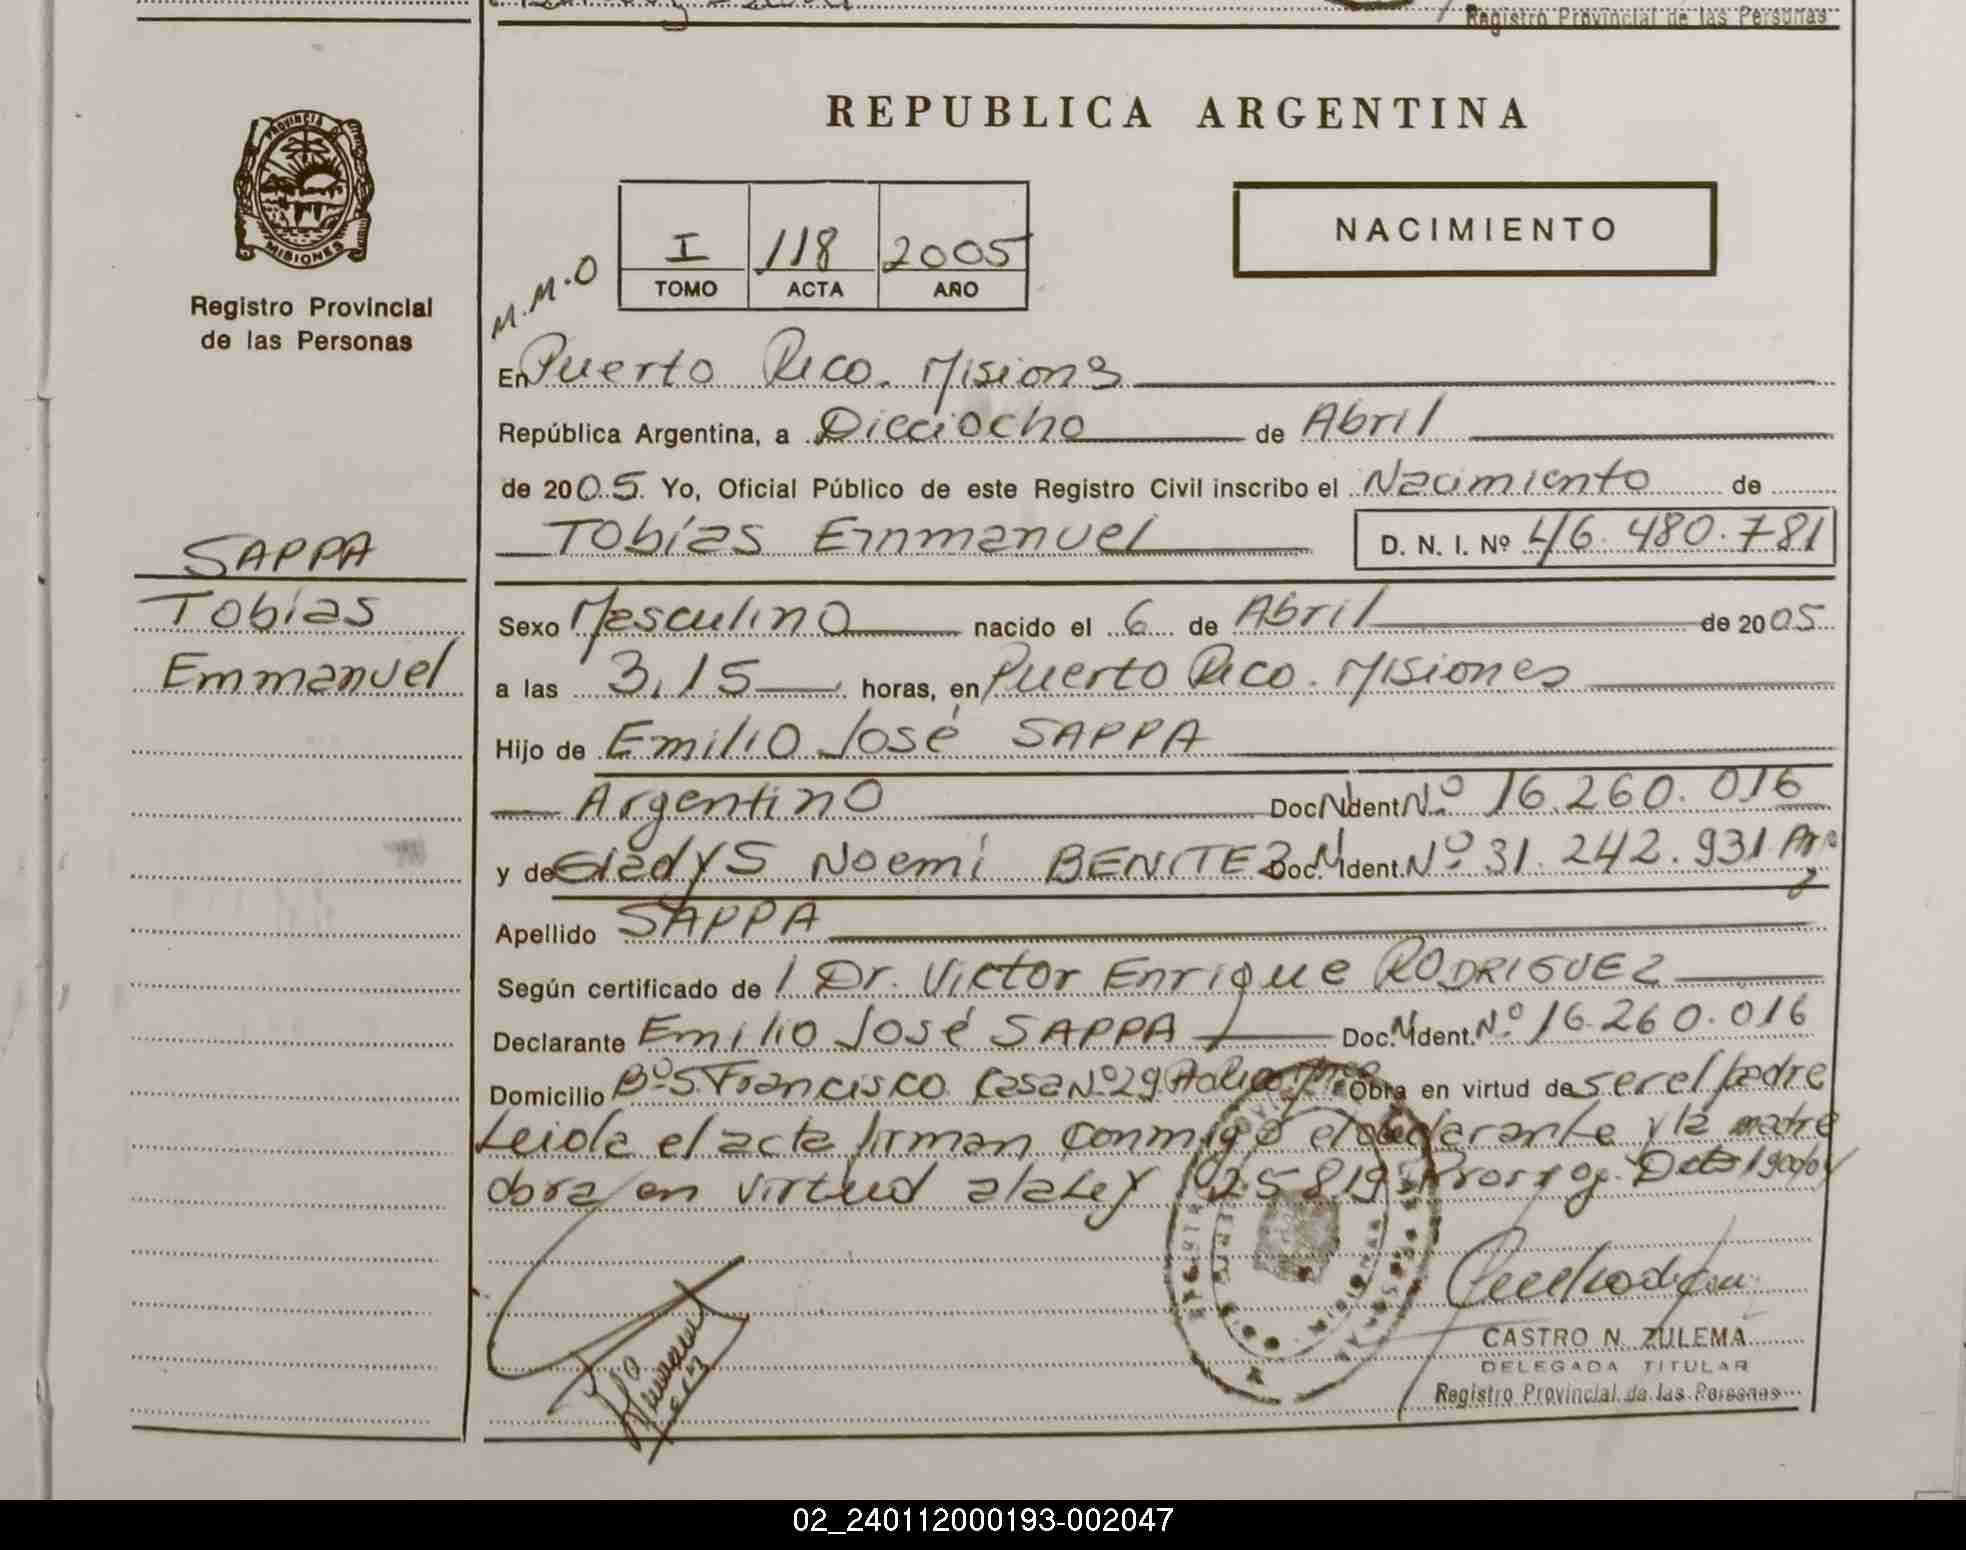 Registro Provincial de las Personas
REPUBLICA ARGENTINA
PROVINCIA DE MISIONES
Registro Provincial
de las Personas
NACIMIENTO
I 118 2005
TOMO ACTA AÑO
M.M.O
En Puerto Rico. Misiones
República Argentina, a Dieciocho de Abril
de 2005. Yo, Oficial Público de este Registro Civil inscribo el Nacimiento de
Tobías Emmanuel D. N. I. Nº 46.480.781
SAPPA
Tobías
Emmanuel
Sexo Masculino nacido el 6 de Abril de 2005
a las 3,15 horas, en Puerto Rico. Misiones
Hijo de Emilio José SAPPA
Argentino Doc.N.Ident.Nº 16.260.016
y de Gladys Noemí BENITEZ Doc.N.Ident.Nº 31.242.931 Arg
Apellido SAPPA
Según certificado de / Dr. Victor Enrique RODRIGUEZ
Declarante Emilio José SAPPA Doc.N.Ident.Nº 16.260.016
Domicilio Bº S. Francisco Casa Nº 29 Pto Rico Mnes Obra en virtud de ser el padre
Leida el acta firman conmigo el declarante y la madre
obra en virtud a la Ley 25.819
CASTRO N. ZULEMA
DELEGADA TITULAR
Registro Provincial de las Personas
02_240112000193-002047